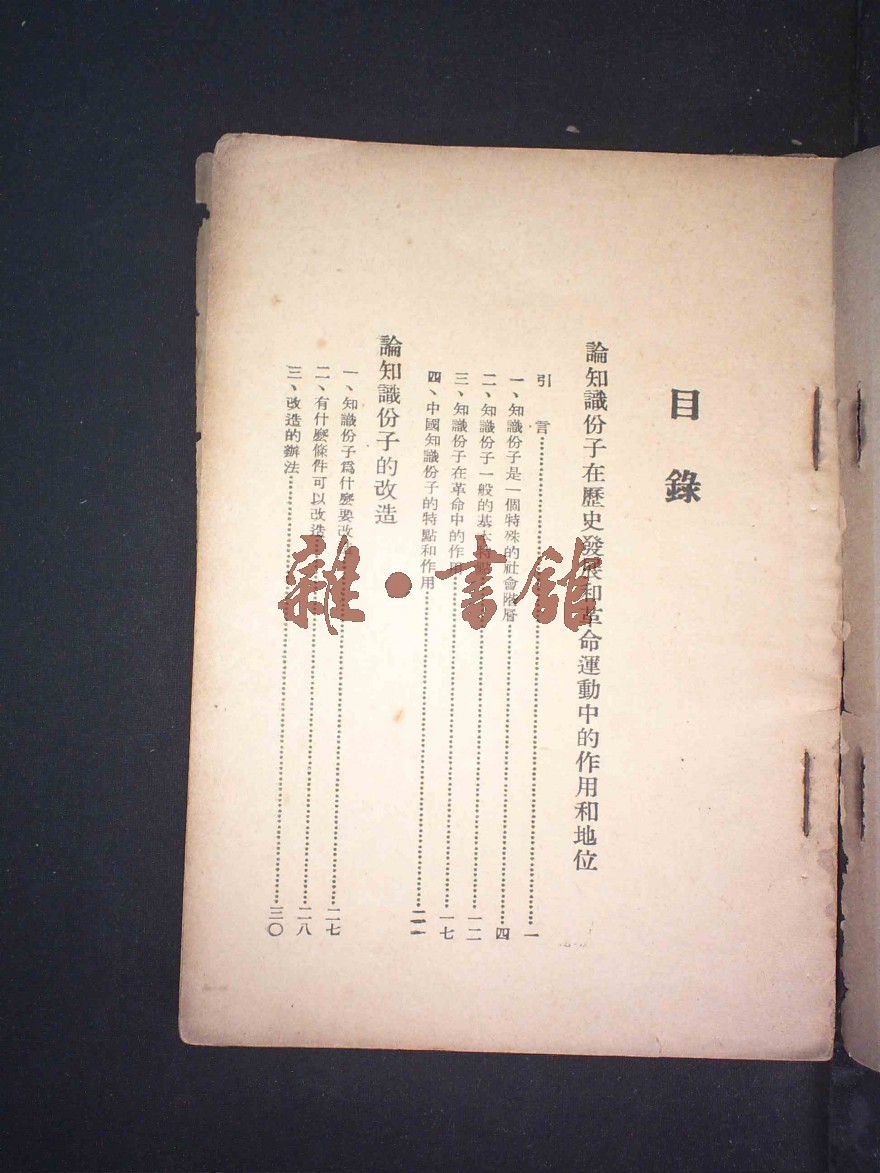 目錄
論知識份子在歷史發展和革命運動中的作用和地位
引言……一
一、知識份子是一個特殊的社會階層……四
二、知識份子一般的基本特點……一二
三、知識份子在革命中的作用……一七
四、中國知識份子的特點和作用……二一
論知識份子的改造
一、知識份子爲什麼要改造……二七
二、有什麼條件可以改造……二八
三、改造的辦法……三〇
雜·書館